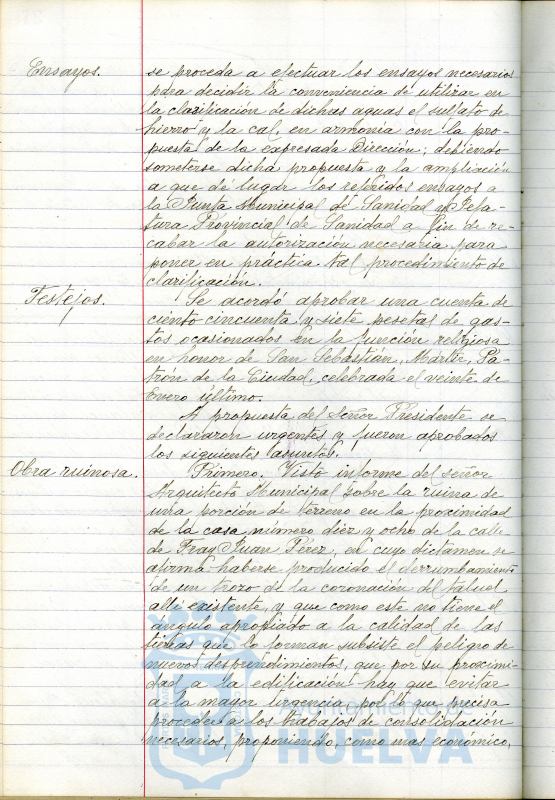 Ensayos.
se proceda a efectuar los ensayos necesarios
para decidir la conveniencia de utilizar en
la clarificación de dichas aguas el sulfato de
hierro y la cal, en armonía con la pro-
puesta de la expresada Dirección; debiendo
someterse dicha propuesta y la ampliación
a que de lugar los referidos ensayos a
la Junta Municipal de Sanidad y Jefa-
tura Provincial de Sanidad a fin de re-
cabar la autorización necesaria para
poner en práctica tal procedimiento de
clarificación.
Festejos.
Se acordó aprobar una cuenta de
ciento cincuenta y siete pesetas de gas-
tos ocasionados en la función religiosa
en honor de San Sebastián, Martir, Pa-
trón de la Ciudad, celebrada el veinte de
Enero último.
A propuesta del señor Presidente se
declararon urgentes y fueron aprobados
los siguientes asuntos.
Obra ruinosa.
Primero. Visto informe del señor
Arquitecto Municipal sobre la ruina de
una porción de terreno en la proximidad
de la casa número diez y ocho de la calle
de Fray Juan Pérez, en cuyo dictamen se
afirma haberse producido el derrumbamiento
de un trozo de la coronación del talud
allí existente, y que como este no tiene el
ángulo apropiado a la calidad de las
tierras que lo forman subsiste el peligro de
nuevos desprendimientos, que por su proximi-
dad a la edificación hay que evitar
a la mayor urgencia por lo que precisa
proceder a los trabajos de consolidación
necesarios, proponiendo, como mas económico,
HUELVA